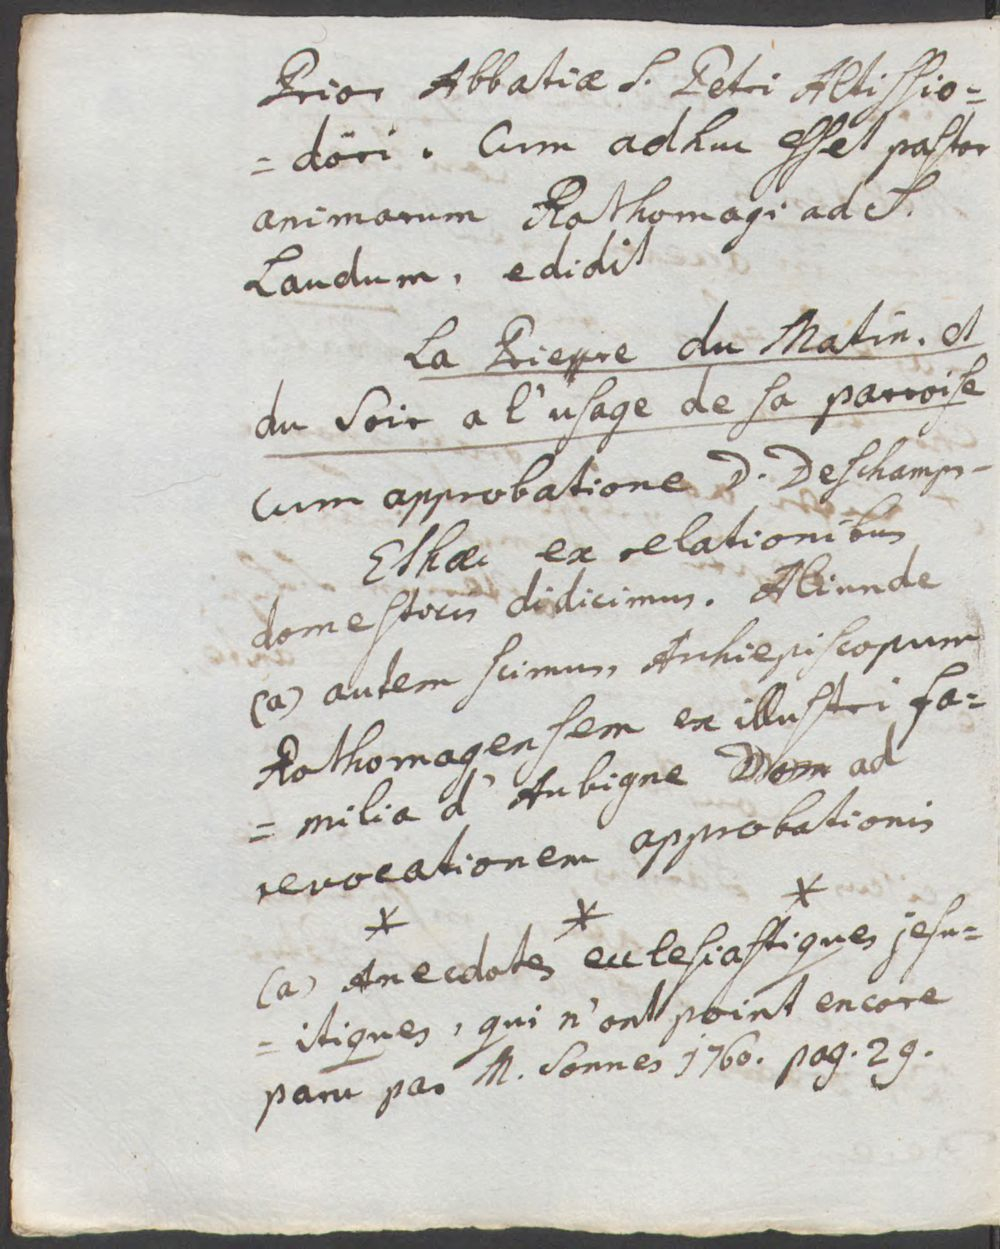 Prior Abbatiæ S. Petri Altissio=
=döri. Cum adhuc esset pastor
animarum Rothomagi ad S.
Laudum, edidit
La Prierre du Matin. et
du Soir a l'usage de sa parroise
Cum approbatione D. Deschamps-
Et hæc ex relationibus
domesticis didicimus. Aliunde
(a) autem scimus, Archiepiscopum
Rothomagensem ex illustri fa=
=milia d'Aubigne ad
revocationem approbationis
* * *
(a) Anecdotes ecclesiastiques jesu=
=itiques, qui n'ont point encore
paru par M. Sonnes 1760. pag. 29.